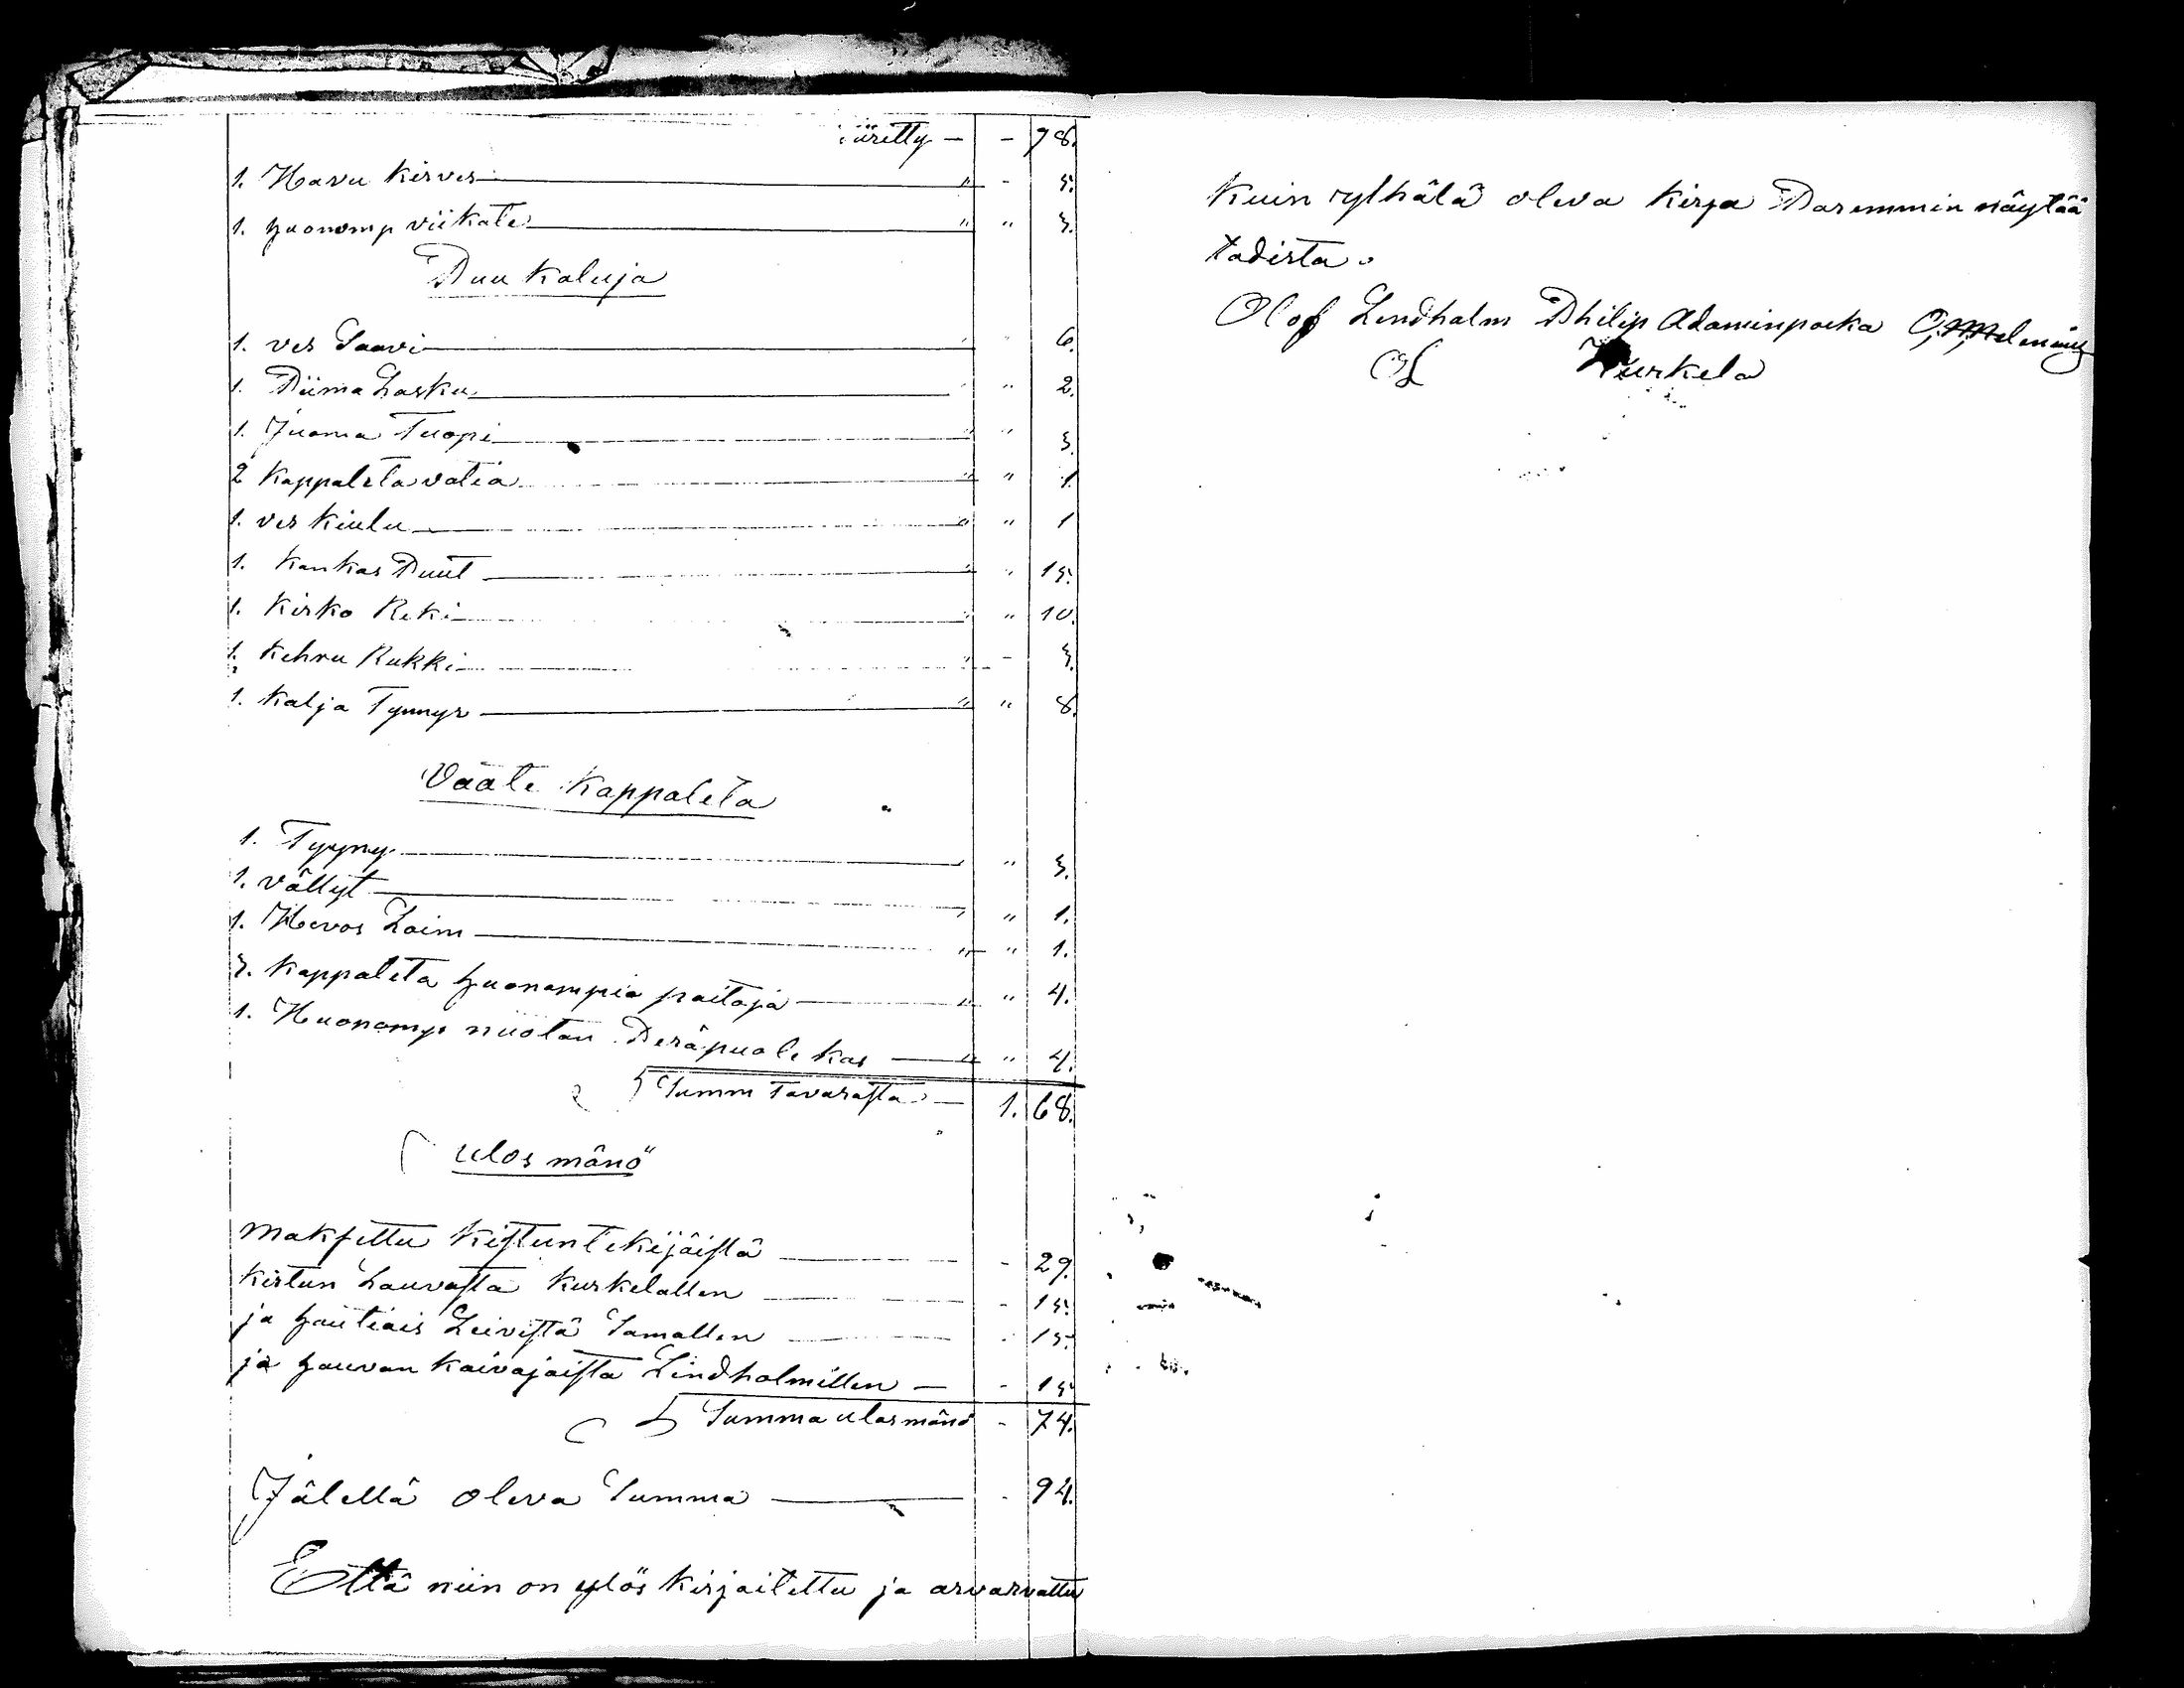 siiretty — - 98.
1. Havu kirves — " - 5.
1. huonomp viikate — " " 3.
Puu kaluja
1. ves Saavi — " 6.
1. Piima Lasku — " " 2.
1. Juoma Tuopi — " " 3.
2 kappaleta vatia — " " 1
1. ves kiulu — " " 1
1. kankas Puut — " " 15.
1. Kirko Reki — " " 10.
1. kehru Rukki — " - 3.
1. kalja Tynnyr — " " 8.
Vaate kappaleta
1. Tyyny — " " 3.
1. vällyt — " " 1.
1. Hevos Loim — " " 1.
3. kappaleta huonompia paitoja — " " 4.
1. Huonomp nuotan Peräpuole kas — " " 4.
Summ Tavarasta — 1. 68.
Ulos mänö
Maksettu kistuntekijäistä — - 29.
kistun Lauvasta kurkelallen — - 15.
ja hautiais Leivistä Samallen — - 15.
ja hauvan kaivajaista Lindholmillen — - 15
Summa ulosmänö - 74.
Jälellä oleva Summa — - 94.
Että niin on ylös kirjoitettu ja arvarvattu
kuin ylhälä oleva kirja Paremmin näytää
todista.
Olof Lindholm Philip Adaminpoika
OL Kurkela